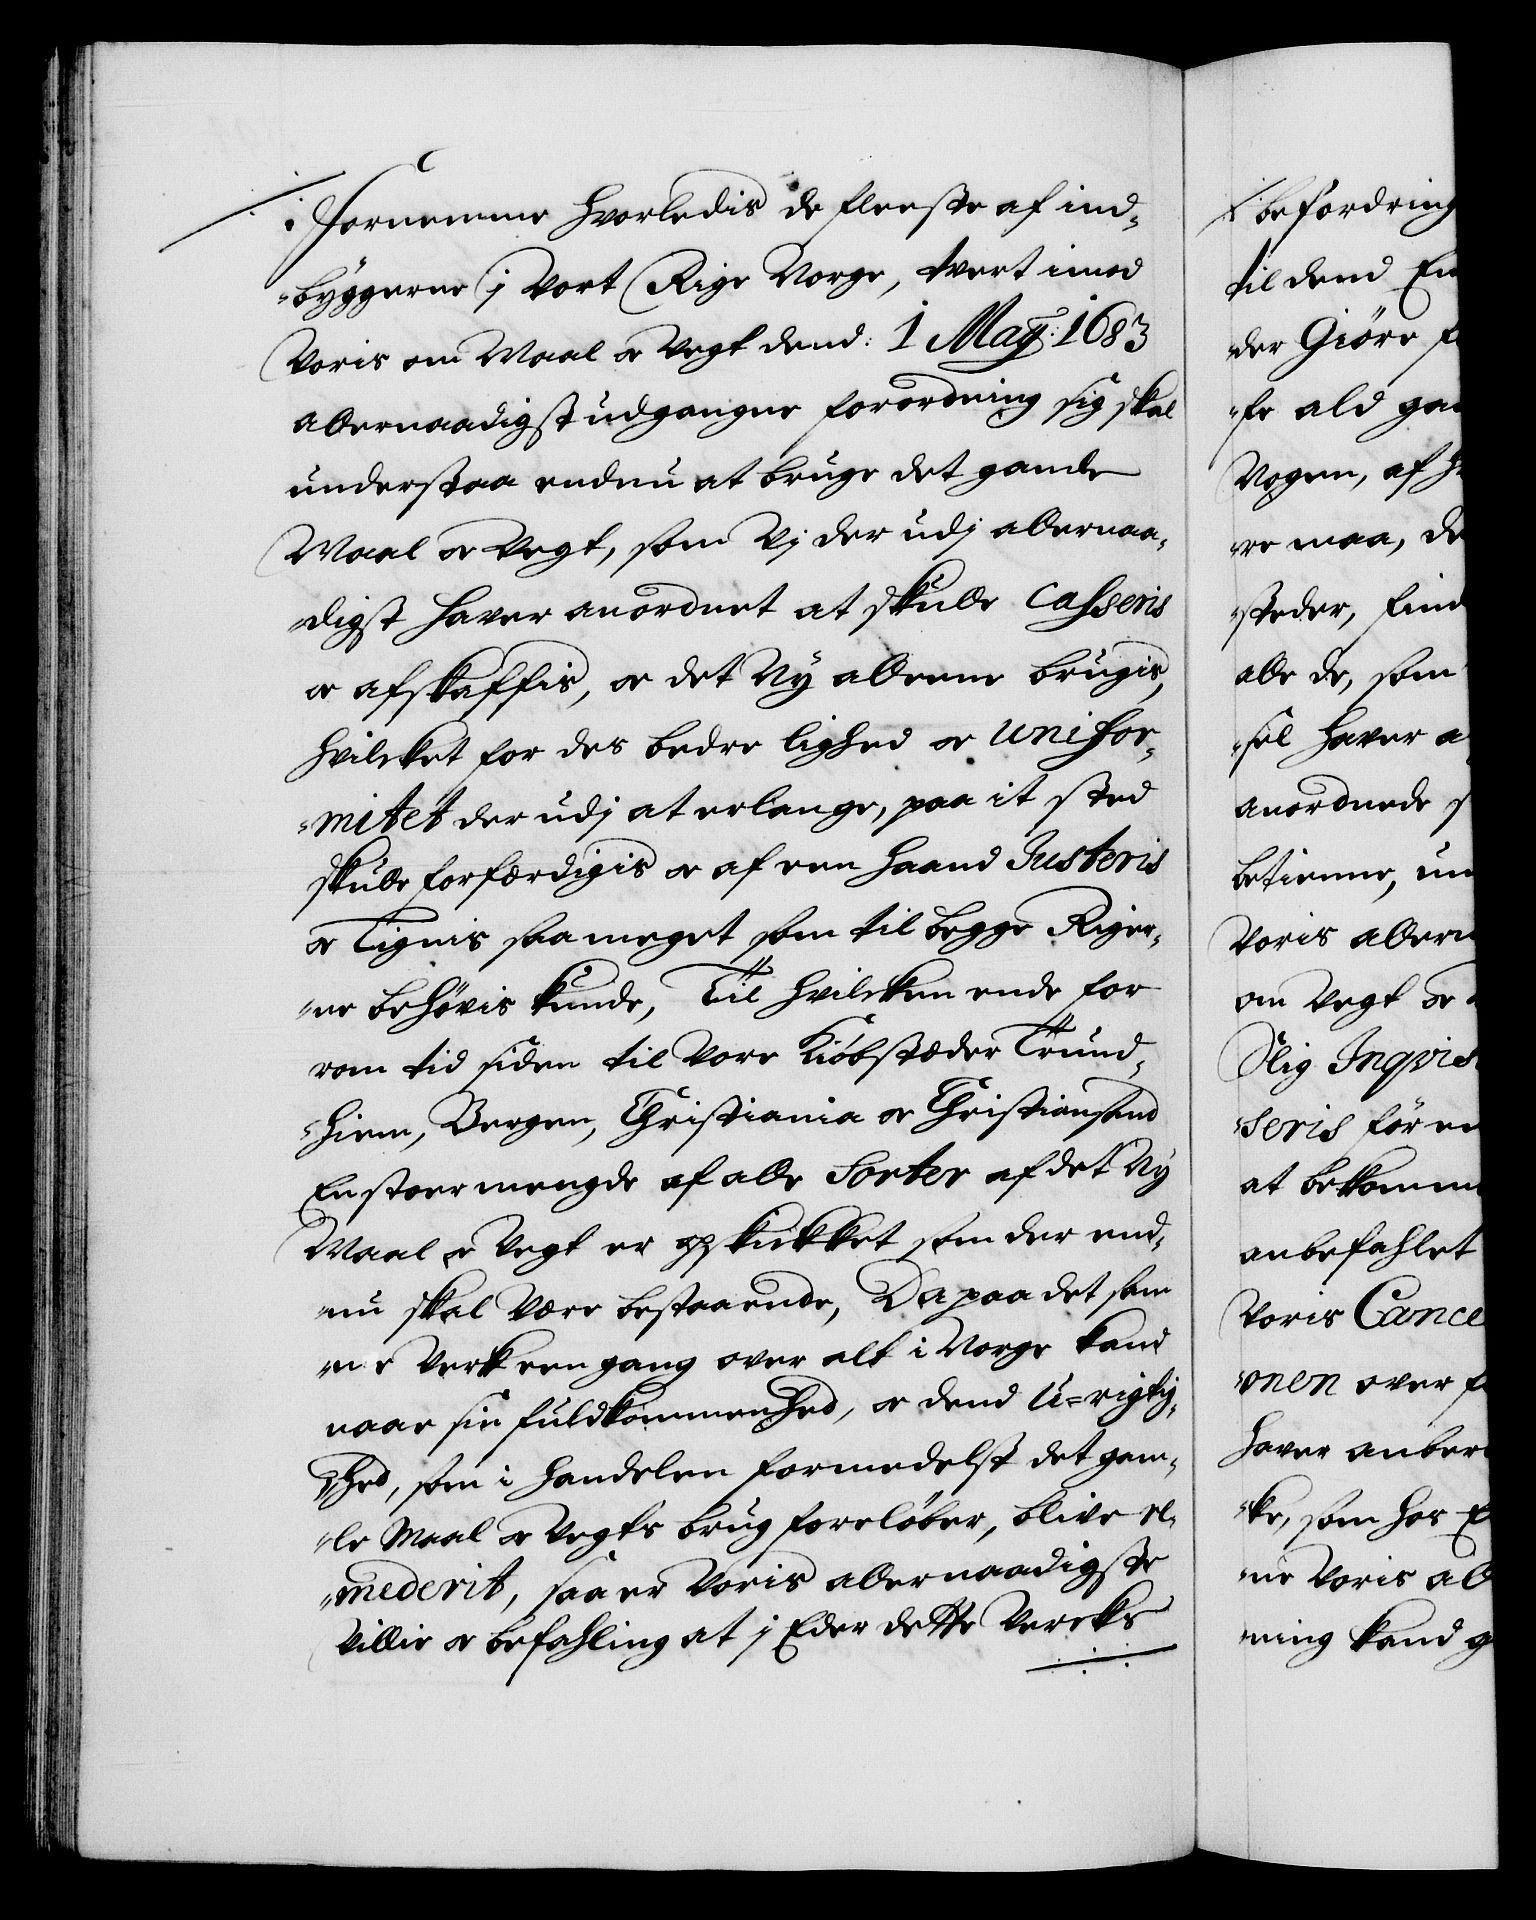 fornemme hvorledis de fleeste af ind-
byggerne j Vort Rige Norge, tvert imod
Voris om Maal oc Vegt dend: 1 Maÿ: 1683
allernaadigst udgangne forordning sig skal
understaa endnu at bruge det gamle
Maal oc Vegt, som Vj der udj allernaa-
digst hafver anordnet at skulle Casseris
oc afskaffis, oc det Nÿ alleene brugis,
hvilcket for des bedre lighed oc unifor-
mitet der udj at erlange, paa it sted
skulle forfærdigis oc af een haand Justeris
oc Tignis saa meget som til begge Riger-
ne behövis kunde, Til hvilcken ende for
rom tid siden til Vore Kiöbstæder Trund-
hiem, Bergen, Christiania oc Christiansand
En stoer mengde af alle Sorter af det Ny
Maal oc Vegt er opskikket som der end-
nu skal være bestaaende, Da paa det sam
me Verk een gang over alt i Norge kand
naae sin fuldkommenhed, oc dend U-rigtig-
hed, som i handelen formedelst det gam-
le Maal oc Vegts brug foreløber, blive re-
mederit, saa er Voris allernaadigste
Villie oc befahling at j Eder dette Vercks
befordring
til dend En
der Giöre
ald
Vogen, af
re maa, de
steder, find
alle de, som
sel hafver a
anordnede
betienne, un
Voris allern
om Vegt oc
Slig Inqvis
seris för en
at bekomm
anbefahlet
Voris Cance
nen over
hafver anber
ke, som hos E
ne Voris all
ning kand g